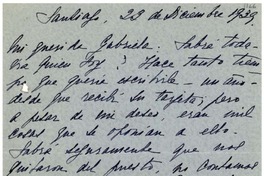 Santiago, 23 de Diciembre 1939.
Mi querida Gabriela: Sabrá toda-
vía quien soy? Hace tanto tiem-
po que quería escribirle - un año
desde que recibí su tarjeta; pero
a pesar de mi deseo, eran mil
cosas que se oponían a ello.
Sabrá seguramente que nos
quitaron del puesto, no contamos